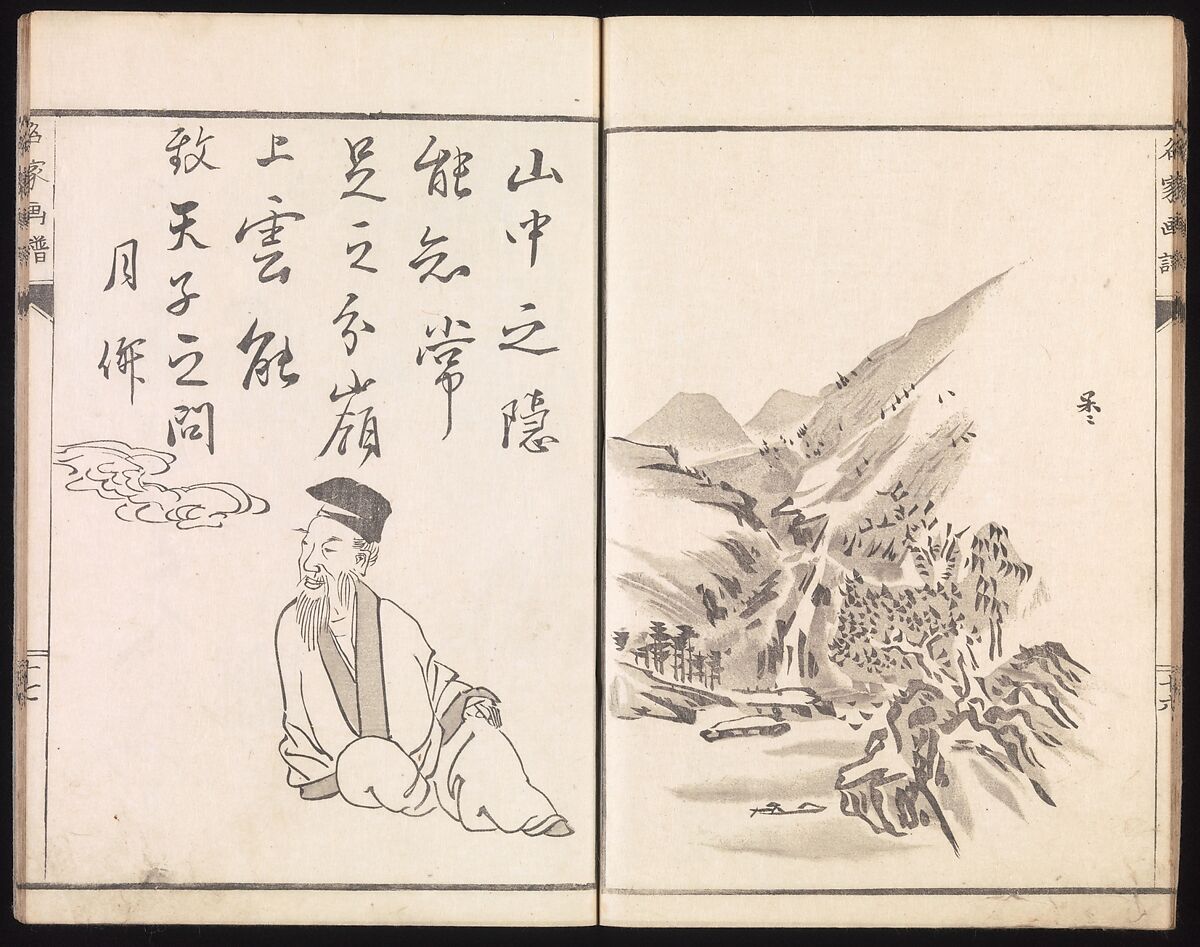 名家画譜
十六
呆ゝ
山中之隠
能念常
足之分嶺
上雲能
致天子之問
月
名家画譜
十七